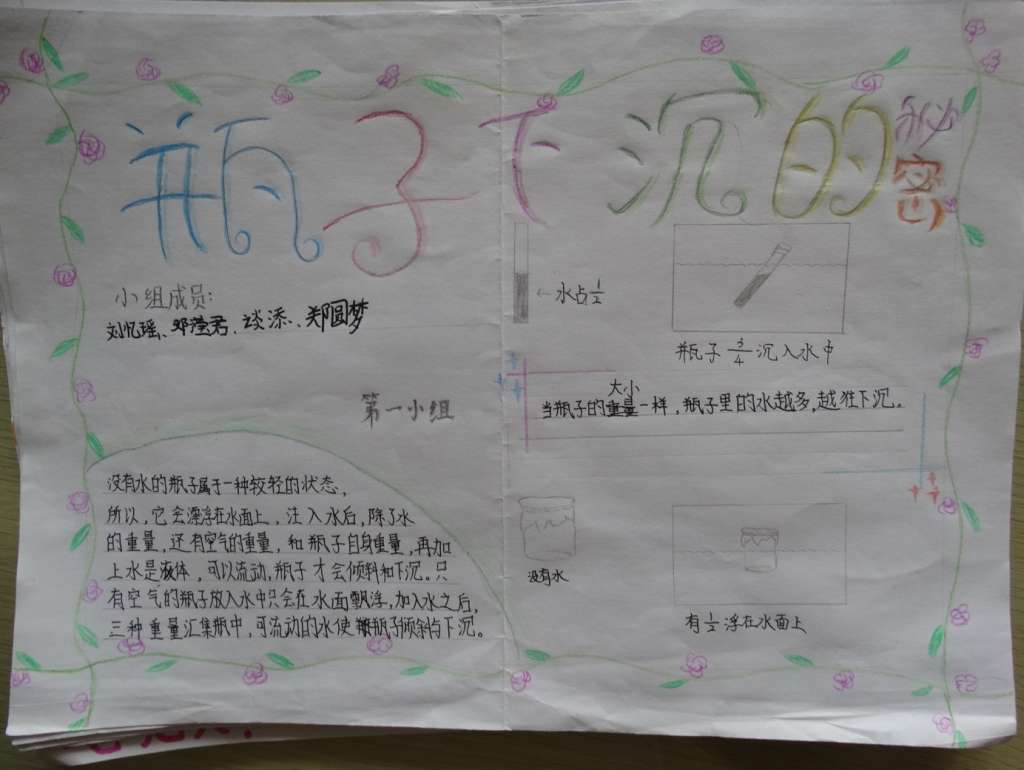 瓶子下沉的秘密
小组成员:
刘忆瑶、邓滢君、谈添、郑圆梦
第一小组
没有水的瓶子属于一种较轻的状态,
所以,它会漂浮在水面上,注入水后,除了水
的重量,还有空气的重量,和瓶子自身重量,再加
上水是液体,可以流动,瓶子才会倾斜和下沉。只
有空气的瓶子放入水中只会在水面飘浮,加入水之后,
三种重量汇集瓶中,可流动的水使瓶子倾斜与下沉。
←水占1/2
瓶子3/4沉入水中
大小
当瓶子的重量一样,瓶子里的水越多,越往下沉。
没有水
有1/2浮在水面上